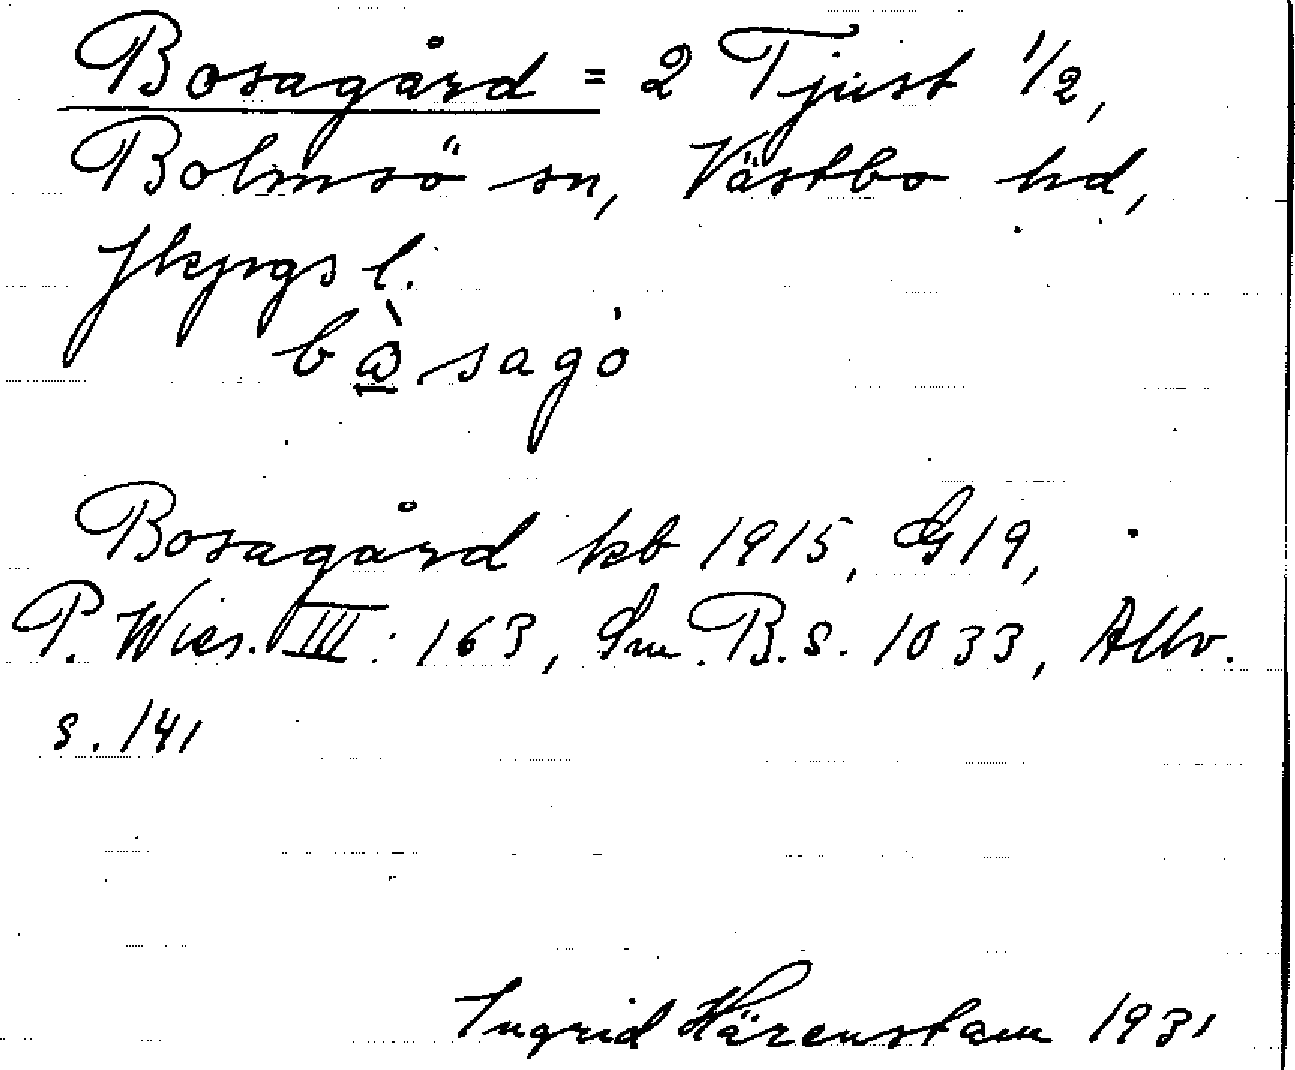 Bosagård = 2 Tjust 1/2,
Bolmsö sn, Västbo hd,
Jkpgs l.
bòsagȯ
Bosagård kb 1915, G19,
P. Wies. III: 163, Sm. B. s. 1033, Allv.
s. 141
Ingrid Härenstam 1931